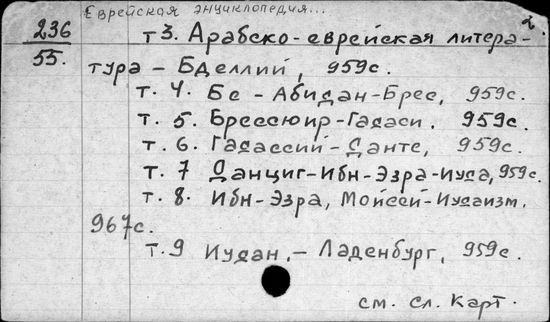 Еврейская энциклопедия... 2.
236 т 3. Арабско-еврейская литера-
55. тура – Бделлий, 959с.
т. 4. Бе – Абидан-Брес, 959с.
т. 5. Брессюир-Гадаси. 959с.
т. 6. Гадассий-Данте, 959с.
т. 7 Данциг-Ибн-Эзра-Иуда, 959с.
т. 8. Ибн-Эзра, Мойсей-Иудаизм.
967с.
т. 9 Иудан, – Ладенбург, 959с.
см. сл. карт.